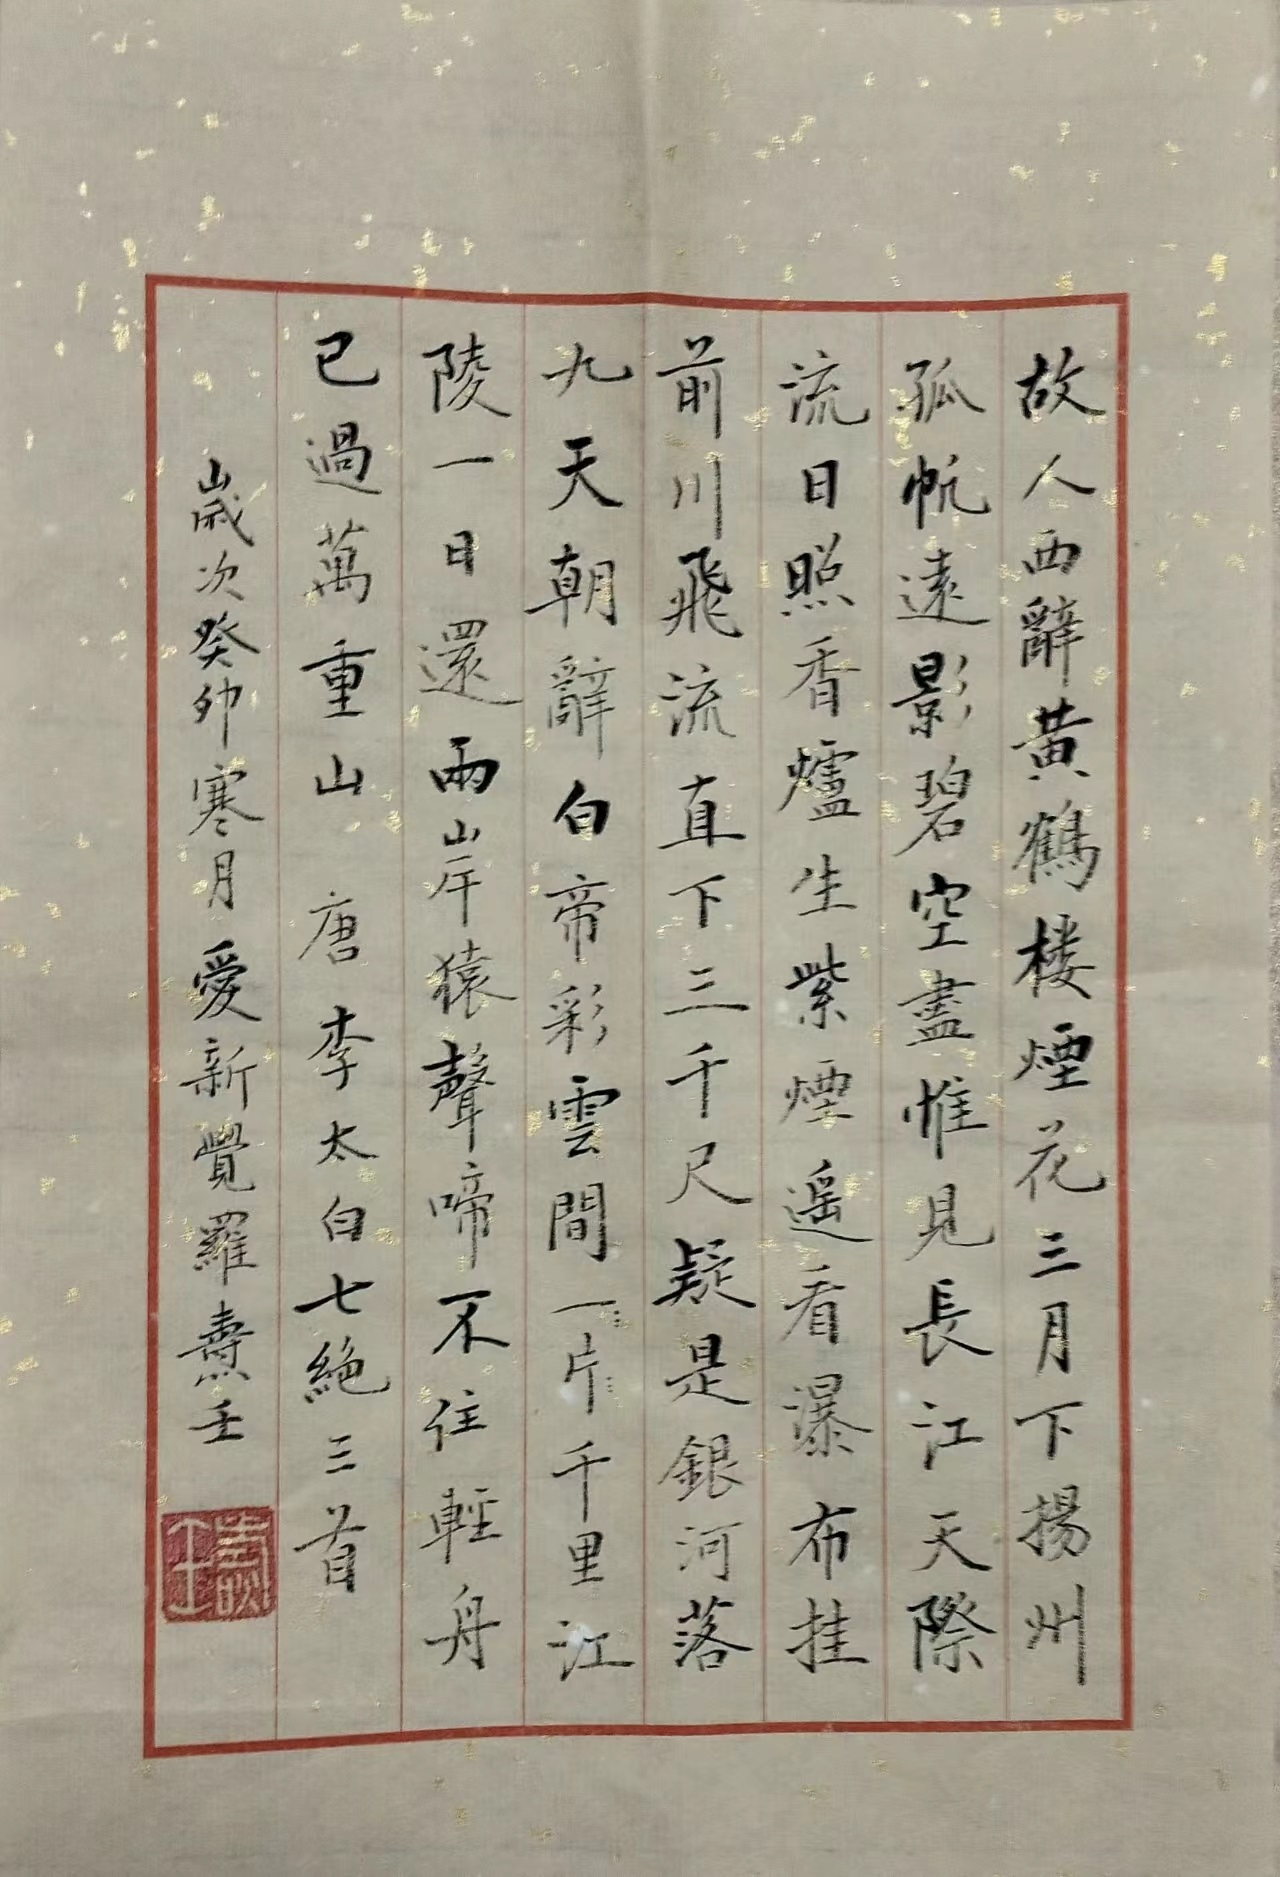 故人西辭黃鶴楼煙花三月下揚州
孤帆遠影碧空盡惟見長江天際
流日照香爐生紫煙遥看瀑布挂
前川飛流直下三千尺疑是銀河落
九天朝辭白帝彩雲間一片千里江
陵一日還兩岸猿聲啼不住輕舟
已過萬重山 唐李太白七絶三首
歲次癸卯寒月愛新覺羅燾壬